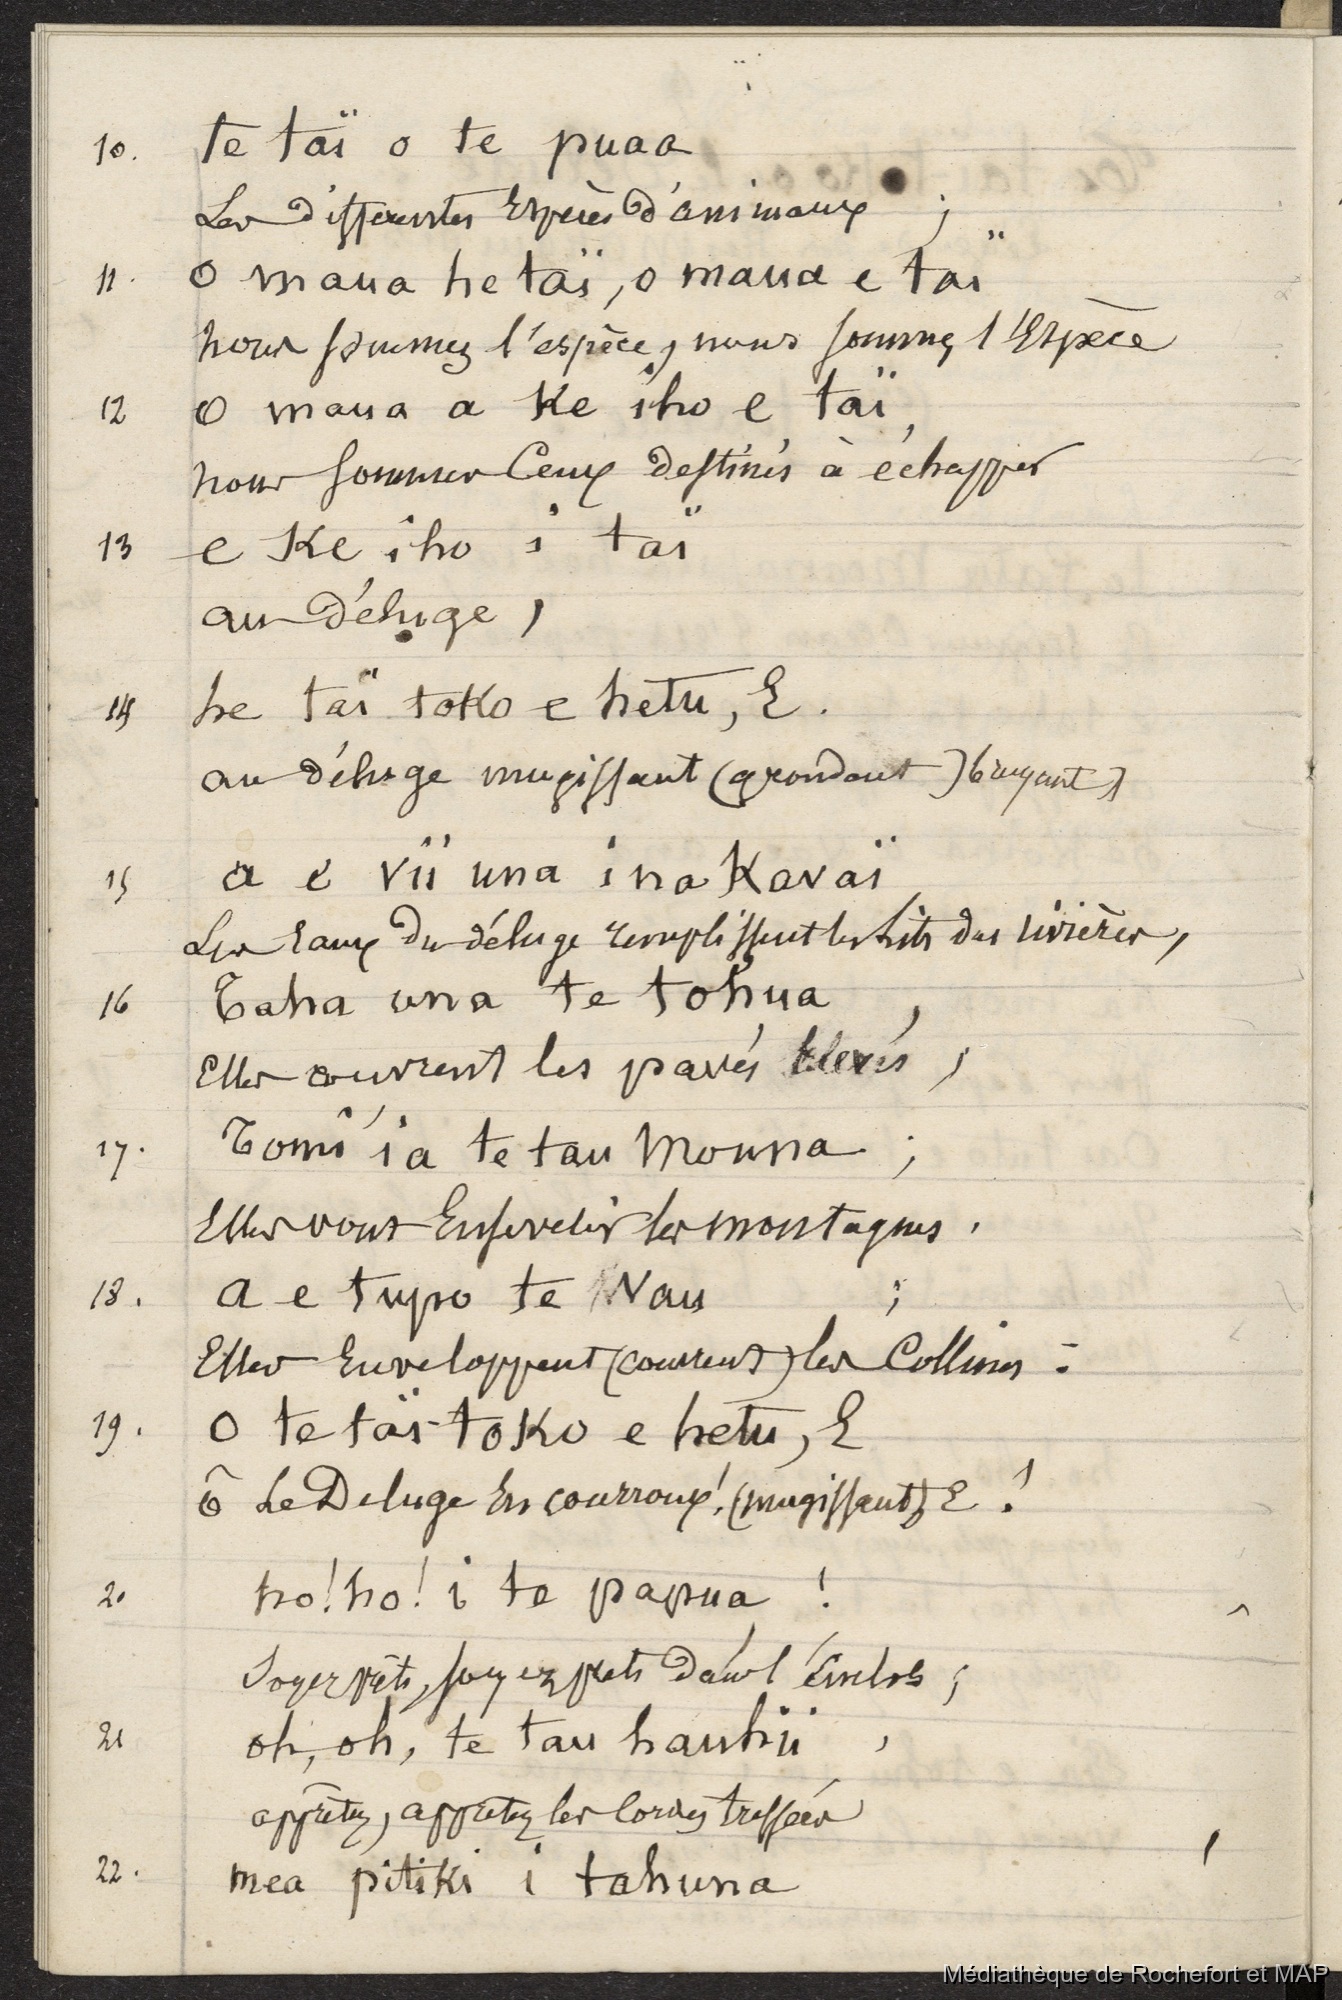 10. te taï o te puaa
Les différentes Espèces d'animaux ;
11. O maua he taï, o maua e taï
nous sommes l'espèce, nous sommes l'Espèce
12 O maua a Ke iho e taï,
nous sommes Ceux destinés à échapper
13 e Ke iho i taï
au Déluge,
14 he taï toKo e hetu, E.
au déluge mugissant (grondant) bruyant)
15 a e vii una i na Kavaï
Les Eaux du déluge remplissent les lits des rivières,
16 Taha una te tohua,
Elles couvrent les pavés Elevés,
17. Tomi'ia te tau Mouna ;
Elles vont Ensevelir les montagnes.
18. a e tupo te Nau ;
Elles Enveloppent (couvrent) les Collines :
19. O te taï toKo e hetu, E
ô Le Deluge En courroux! (mugissant) E !
20 ho! ho! i te papua !
Soyez prêts, soyez prets dans l'Enclos ;
21 oh, oh, te tau hauhii,
apprêtez, apprêtez les cordes tressées
22. mea pitiKi i tahuna
Médiathèque de Rochefort et MAP